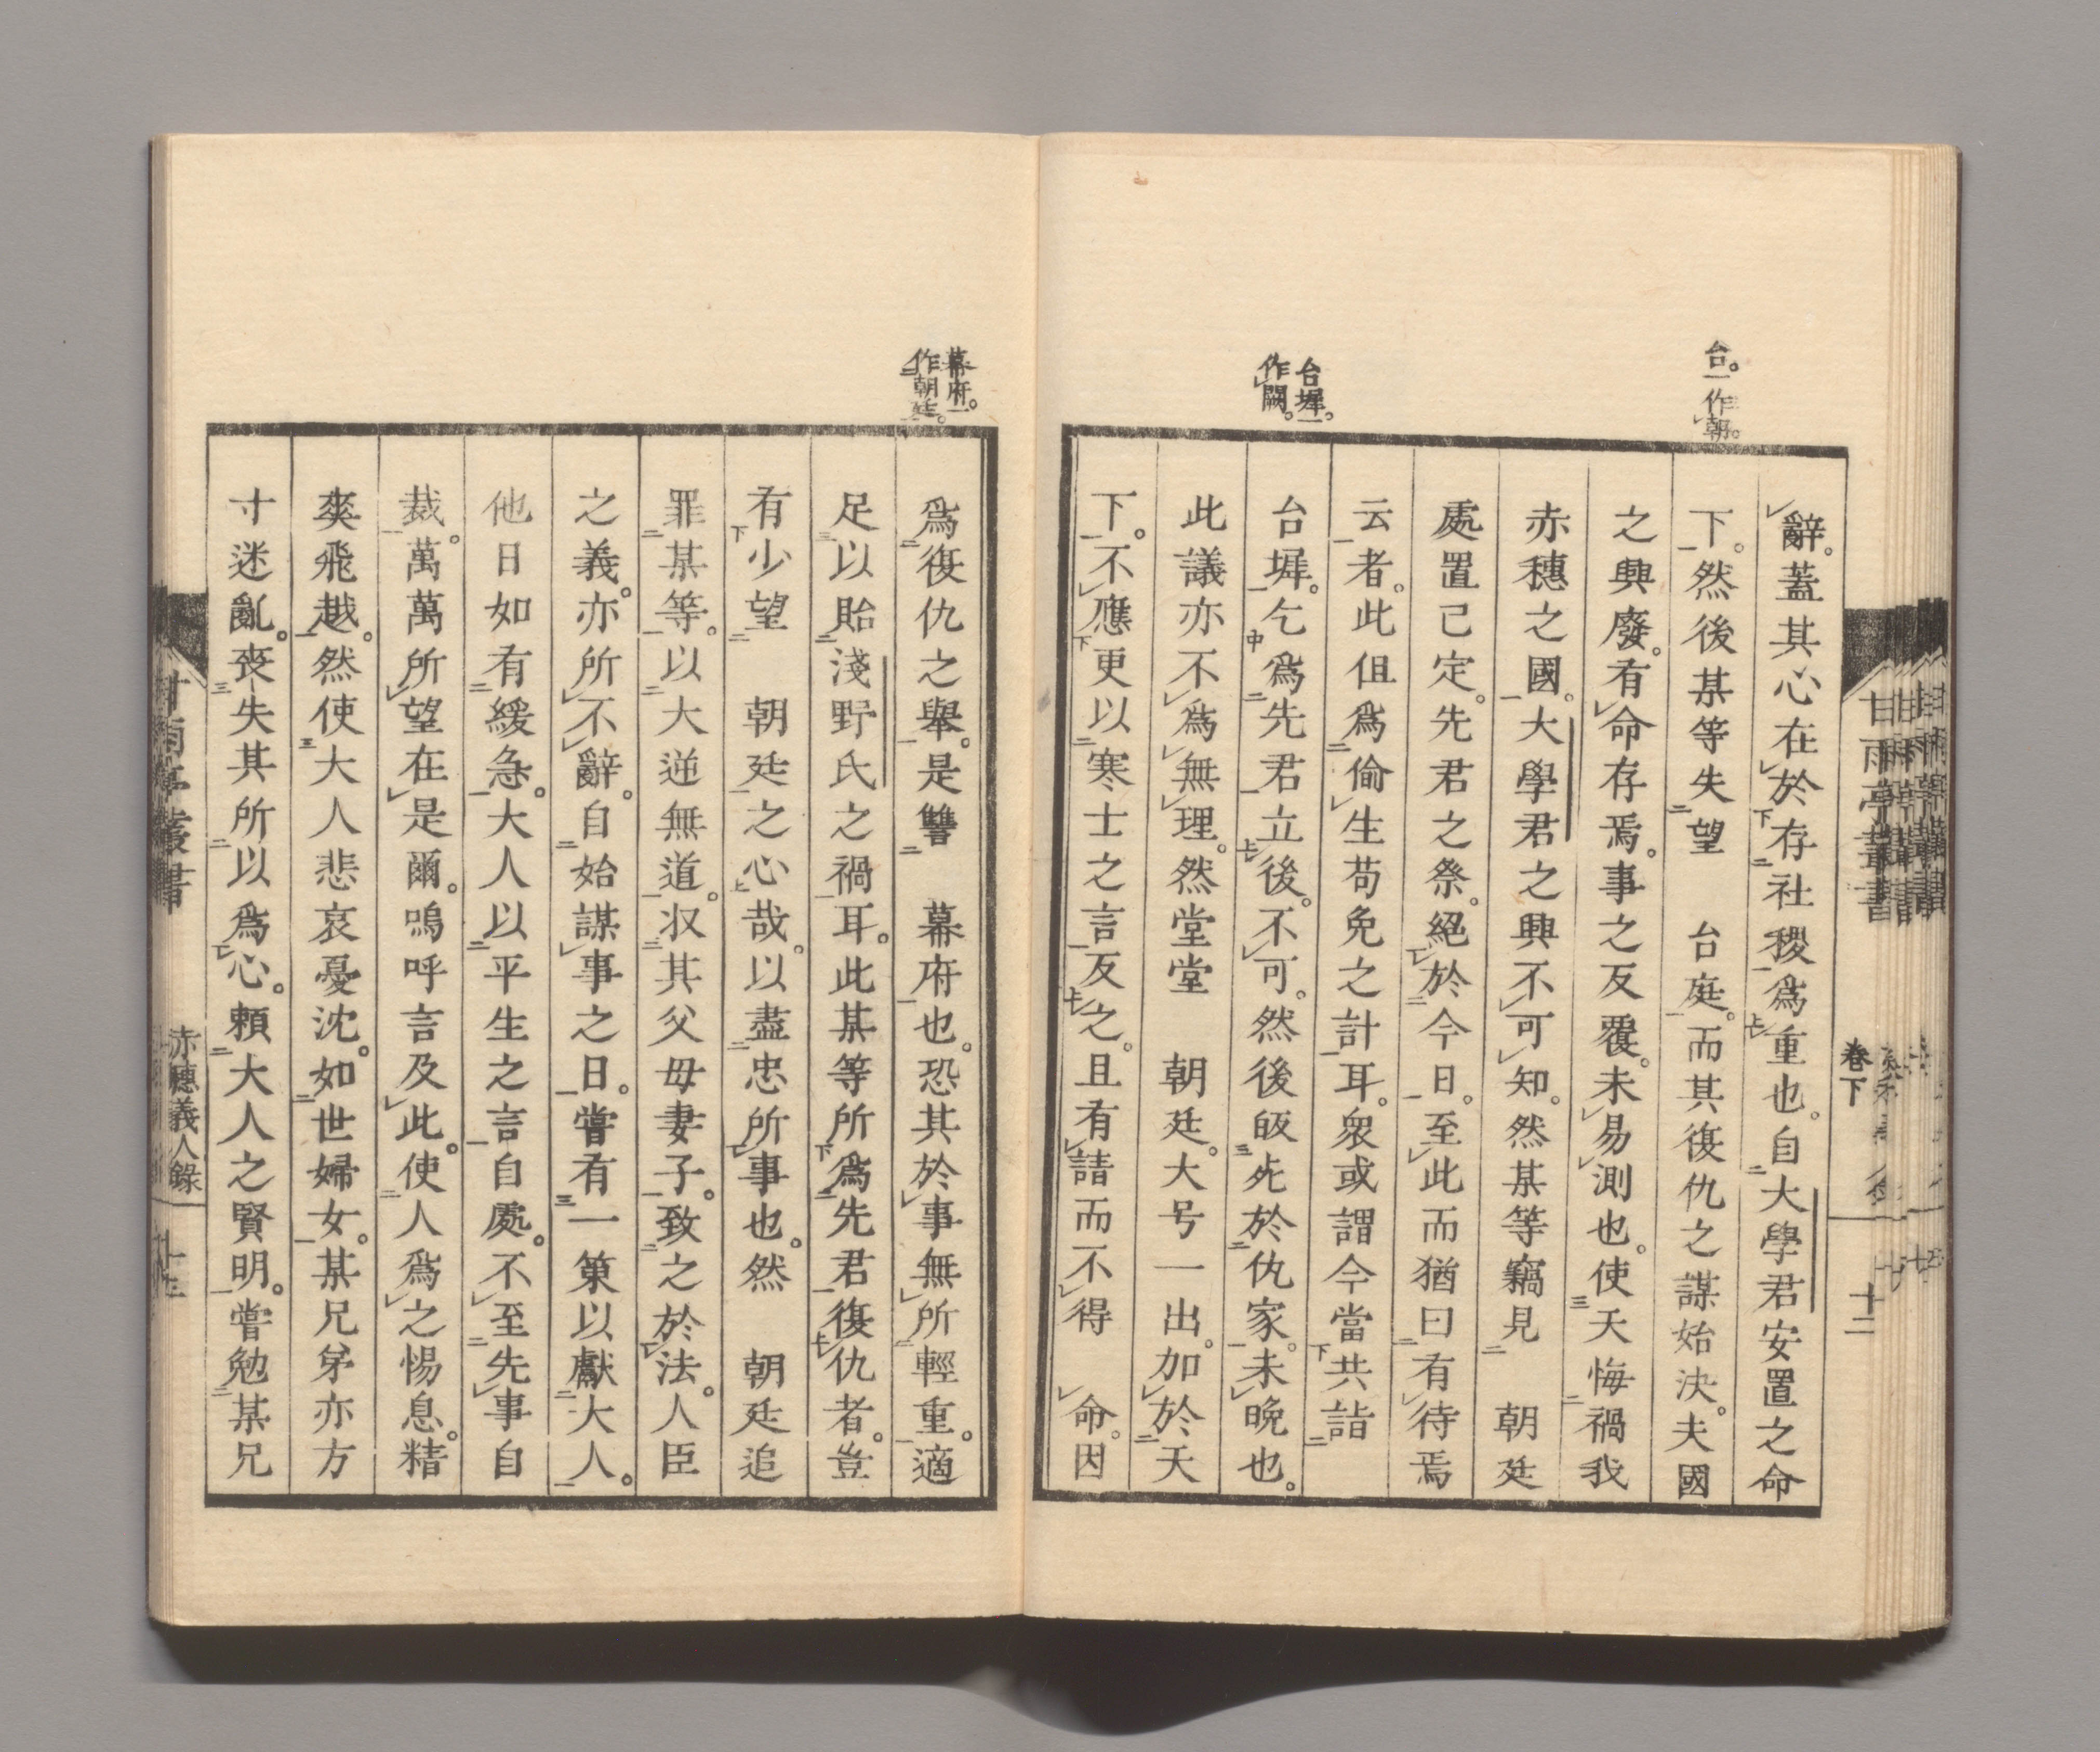 台。一作朝。
辭。蓋其心在於存社稷爲重也。自大學君安置之命
下。然後某等失望　台庭。而其復仇之謀始決。夫國
之興廢。有命存焉。事之反覆。未易測也。使天悔禍我
赤穗之國。大學君之興不可知。然某等竊見　朝廷
處置已定。先君之祭。絕於今日。至此而猶曰有待焉
云者。此伹爲偷生苟免之計耳。衆或謂今當共詣
台墀。一
作闕。
台墀。乞爲先君立後。不可。然後皈死於仇家。未晚也。
此議亦不爲無理。然堂堂　朝廷。大号一出。加於天
下。不應更以寒士之言反之。且有請而不得　命。因
甘雨亭叢書
卷下
十二
幕府。一
作朝廷。
爲復仇之舉。是讐　幕府也。恐其於事無所輕重。適
足以貽淺野氏之禍耳。此某等所爲先君復仇者。豈
有少望　朝廷之心哉。以盡忠所事也。然　朝廷追
罪某等。以大逆無道。収其父母妻子。致之於法。人臣
之義。亦所不辭。自始謀事之日。嘗有一策以獻大人。
他日如有緩急。大人以平生之言自處。不至先事自
裁。萬萬所望在是爾。嗚呼言及此。使人爲之惕息。精
爽飛越。然使大人悲哀憂沈。如世婦女。某兄弟亦方
寸迷亂。喪失其所以爲心。賴大人之賢明。嘗勉某兄
甘雨亭叢書
赤穗義人錄